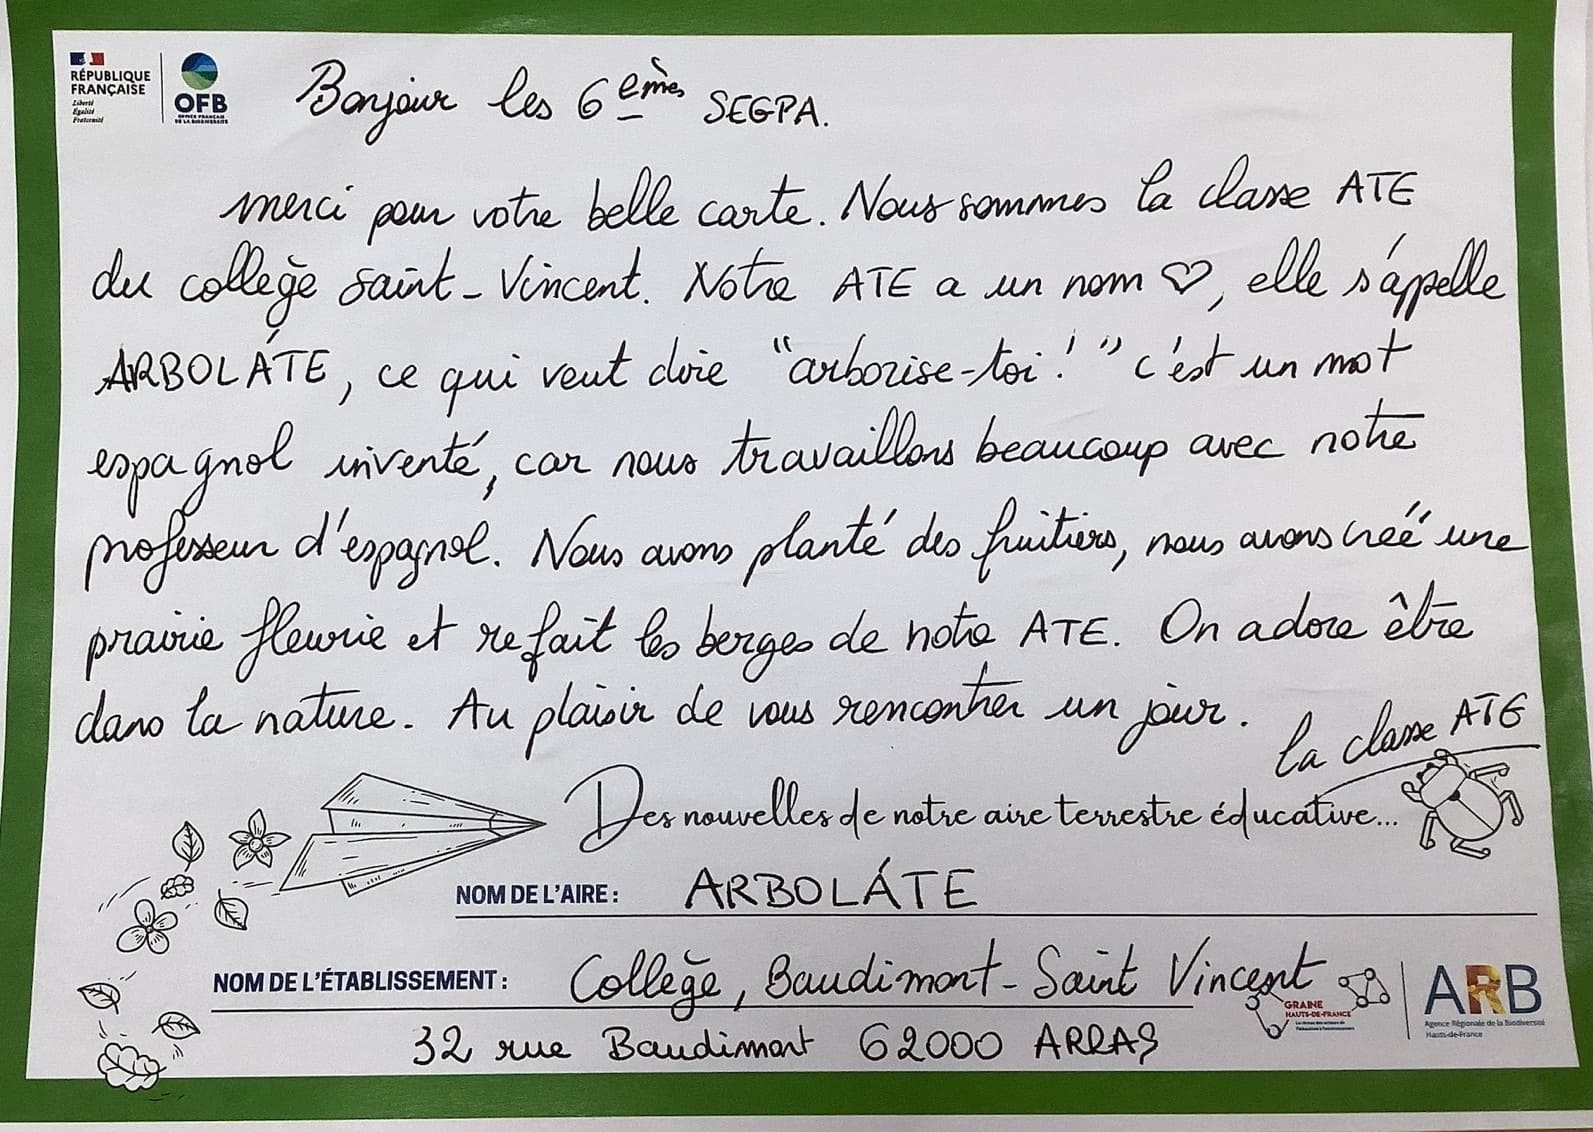 RÉPUBLIQUE
FRANÇAISE
Liberté
Égalité
Fraternité
OFB
OFFICE FRANÇAIS
DE LA BIODIVERSITÉ
Bonjour les 6 emes SEGPA.
merci pour votre belle carte. Nous sommes la classe ATE
du collège saint-Vincent. Notre ATE a un nom ♡, elle s'appelle
ARBOLÁTE, ce qui veut dire "arborise-toi!" c'est un mot
espagnol inventé, car nous travaillons beaucoup avec notre
professeur d'espagnol. Nous avons planté des fruitiers, nous avons créé une
prairie fleurie et refait les berges de notre ATE. On adore être
dans la nature. Au plaisir de vous rencontrer un jour.
la classe ATE
Des nouvelles de notre aire terrestre éducative...
NOM DE L'AIRE : ARBOLÁTE
NOM DE L'ÉTABLISSEMENT : Collège, Baudimont-Saint Vincent
32 rue Baudimont 62000 ARRAS
GRAINE
HAUTS-DE-FRANCE
ARB
Agence Régionale de la Biodiversité
Hauts-de-France